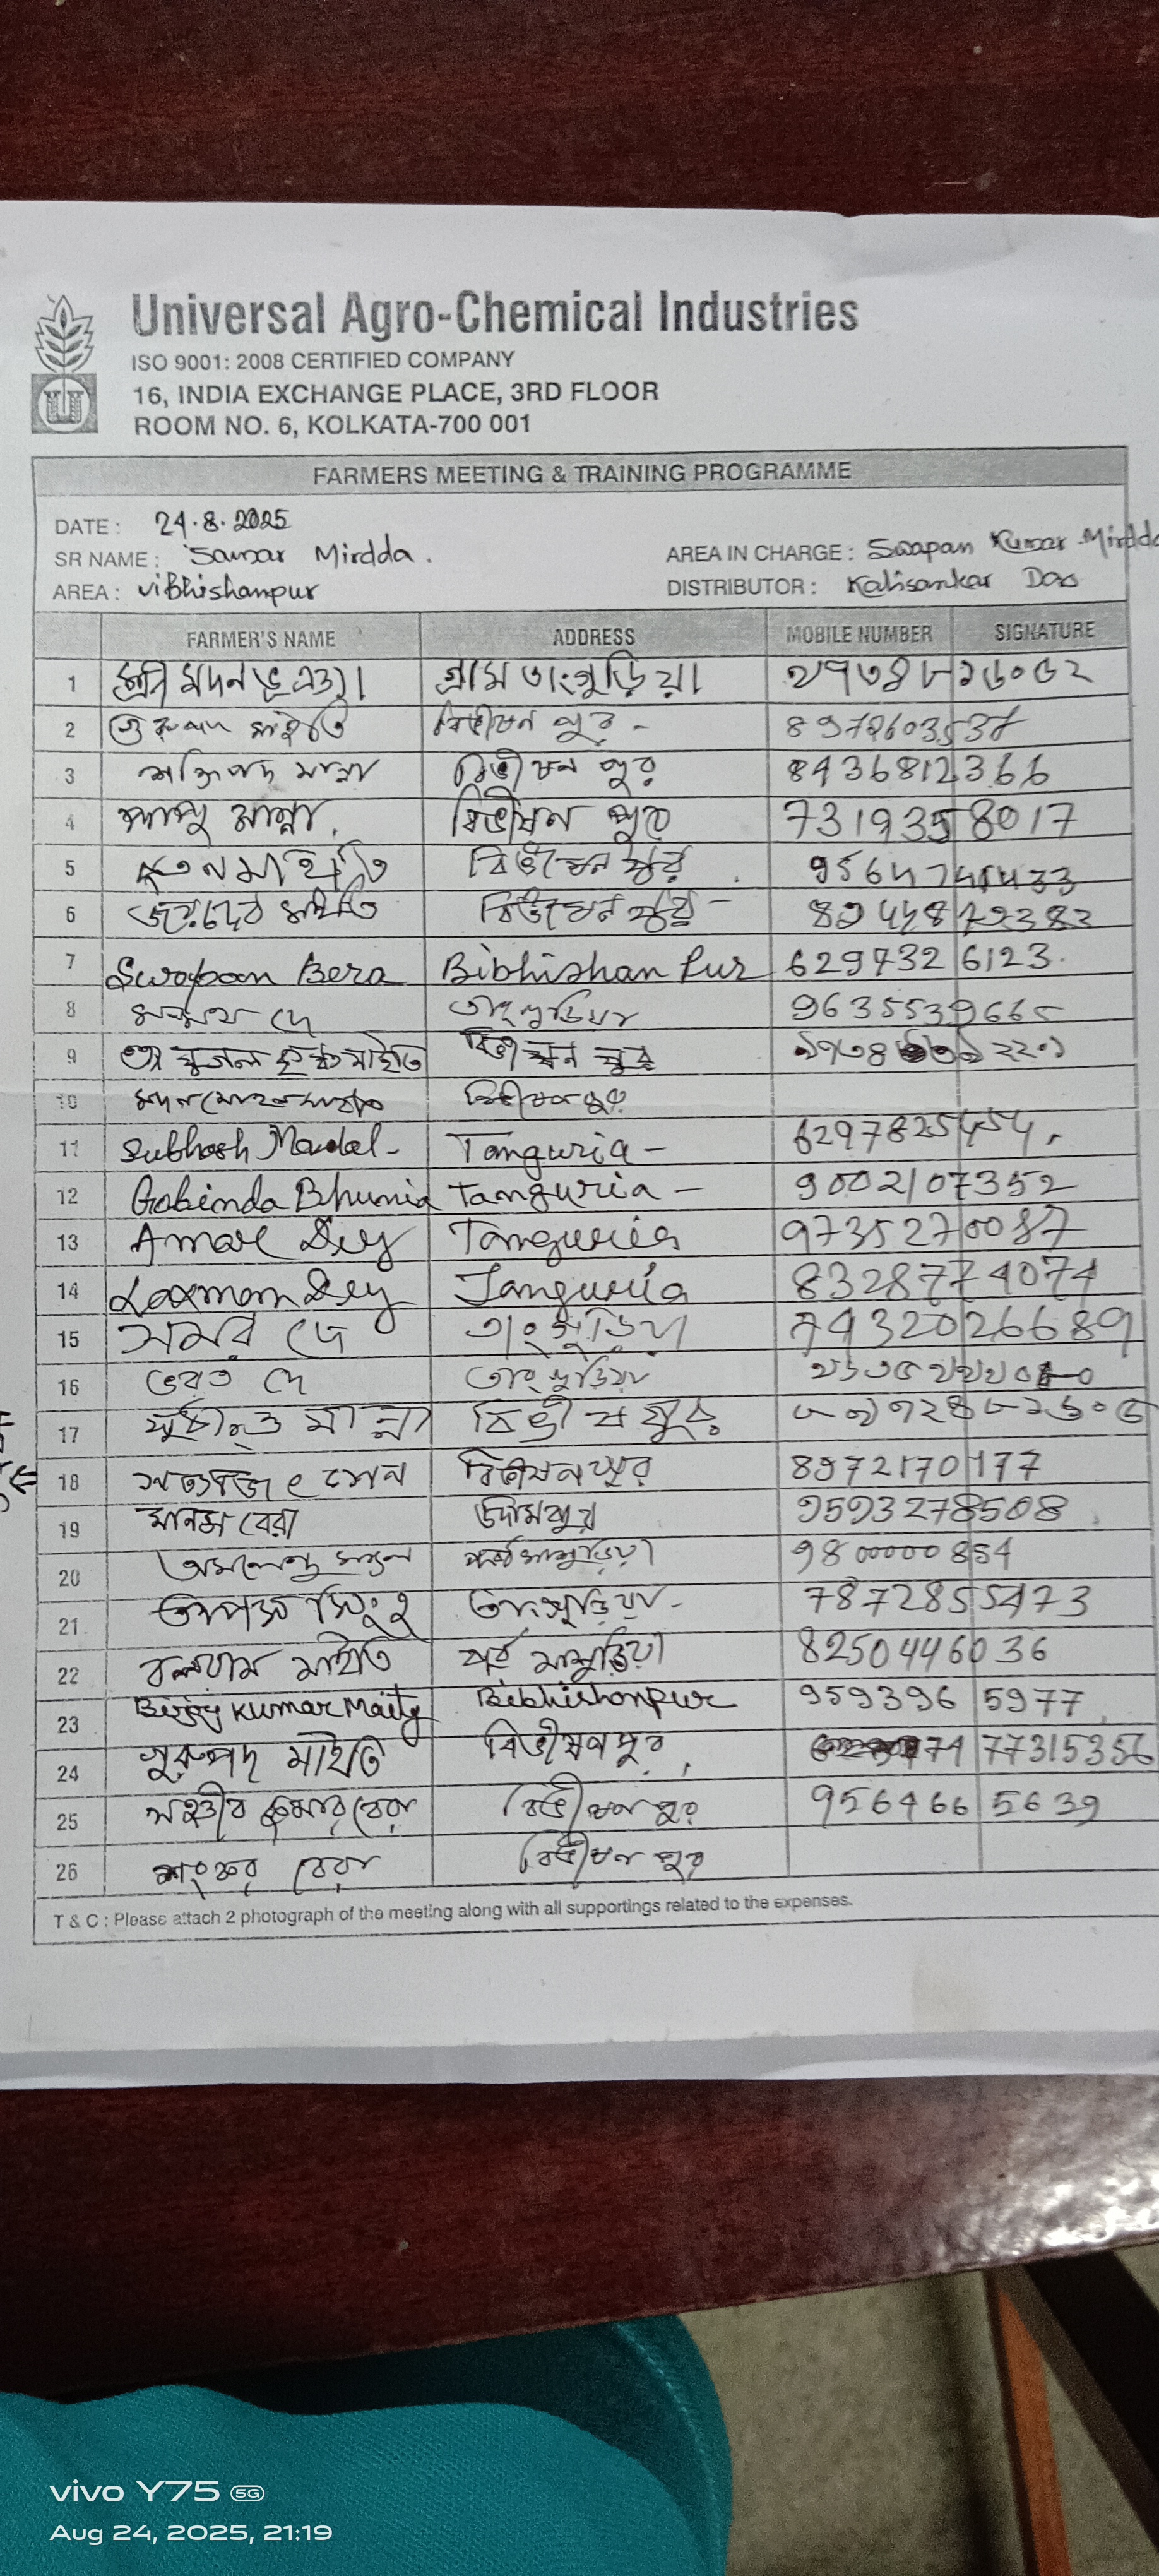 Universal Agro-Chemical Industries
ISO 9001: 2008 CERTIFIED COMPANY
16, INDIA EXCHANGE PLACE, 3RD FLOOR
ROOM NO. 6, KOLKATA-700 001
FARMERS MEETING & TRAINING PROGRAMME
DATE : 24.8.2025
SR NAME : Samar Mirdda. AREA IN CHARGE : Swapan Kumar Mirdda
AREA : Vibhishanpur DISTRIBUTOR : Kalisankar Das
FARMER'S NAME ADDRESS MOBILE NUMBER SIGNATURE
1 শ্রী মদন ভূঞ্যা। গ্রাম তাংগুড়িয়া।
2 গুরুপদ মাইতি বিভীষন পুর -
3 শক্তিপদ মান্না বিভীষন পুর 8436812366
4 মান্না. বিভীষন পুর 7319358017
5 রতন মাইতি বিভীষন পুর
6 জয়দেব মাইতি বিভীষন পুর -
7 Swapan Bera Bibhishan Pur 6297326123.
8 মন্মথ দে তাংগুড়িয়া 9635539665
9 যুগল কৃষ্ণ মাইতি বিভীষন পুর
10 বিভীষনপুর
11 Subhash Mandal- Tanguria - 6297825454.
12 Gobinda Bhunia Tanguria - 9002107352
13 Amar Dey Tanguria 9735270087
14 Laxman Dey Tanguria 8328774074
15 সমর দে তাংগুড়িয়া 74320266689
16 ভরত দে তাংগুড়িয়া
17 মান্না বিভীষপুর ৮৯৭২৪৮২৬০৫
18 সত্যজিৎ সেন বিভীষনপুর 8972170177
19 মানস বেরা 9593278508
20 অমলেন্দু মন্ডল 9800000854
21 তাপস সিংহ তাংগুড়িয়া - 7872855473
22 বলরাম মাইতি পূর্ব 8250446036
23 Bijoy Kumar Maity Bibhishanpur 9593965977
24 গুরুপদ মাইতি বিভীষণপুর 74 77315356
25 সঞ্জীব কুমার বেরা বিভীষণ পুর 9564665639
26 শংকর বেরা বিভীষন পুর
T & C : Please attach 2 photograph of the meeting along with all supportings related to the expenses.
vivo Y75 5G
Aug 24, 2025, 21:19